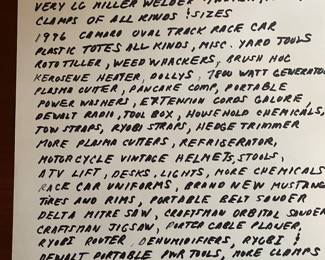 VERY LG MILLER WELDER,
CLAMPS OF ALL KINDS & SIZES
1976 CAMARO OVAL TRACK RACE CAR
PLASTIC TOTES ALL KINDS, MISC. YARD TOOLS
ROTOTILLER, WEED WHACKERS, BRUSH HOG
KEROSENE HEATER, DOLLYS, 7800 WATT GENERATOR
PLASMA CUTTER, PANCAKE COMP, PORTABLE
POWER WASHERS, EXTENTION CORDS GALORE,
DEWALT RADIO, TOOL BOX, HOUSEHOLD CHEMICALS,
TOW STRAPS, RYOBI STRAPS, HEDGE TRIMMER
MORE PLASMA CUTTERS, REFRIGERATOR,
MOTORCYCLE VINTAGE HELMETS, STOOLS,
ATV LIFT, DESKS, LIGHTS, MORE CHEMICALS
RACE CAR UNIFORMS, BRAND NEW MUSTANG
TIRES AND RIMS, PORTABLE BELT SANDER
DELTA MITRE SAW, CRAFTSMAN ORBITAL SANDER
CRAFTSMAN JIGSAW, PORTER CABLE PLANER,
RYOBI ROUTER, DEHUMIDIFIERS, RYOBI &
DEWALT PORTABLE PWR TOOLS, MORE CLAMPS